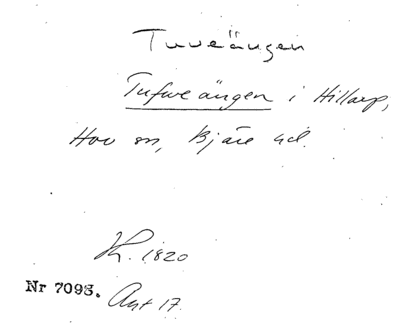 Tuveängen
Tufwe ängen i Hillarp,
Hov sn, Bjäre hd.
1820
Nr 7093.
Akt 17.